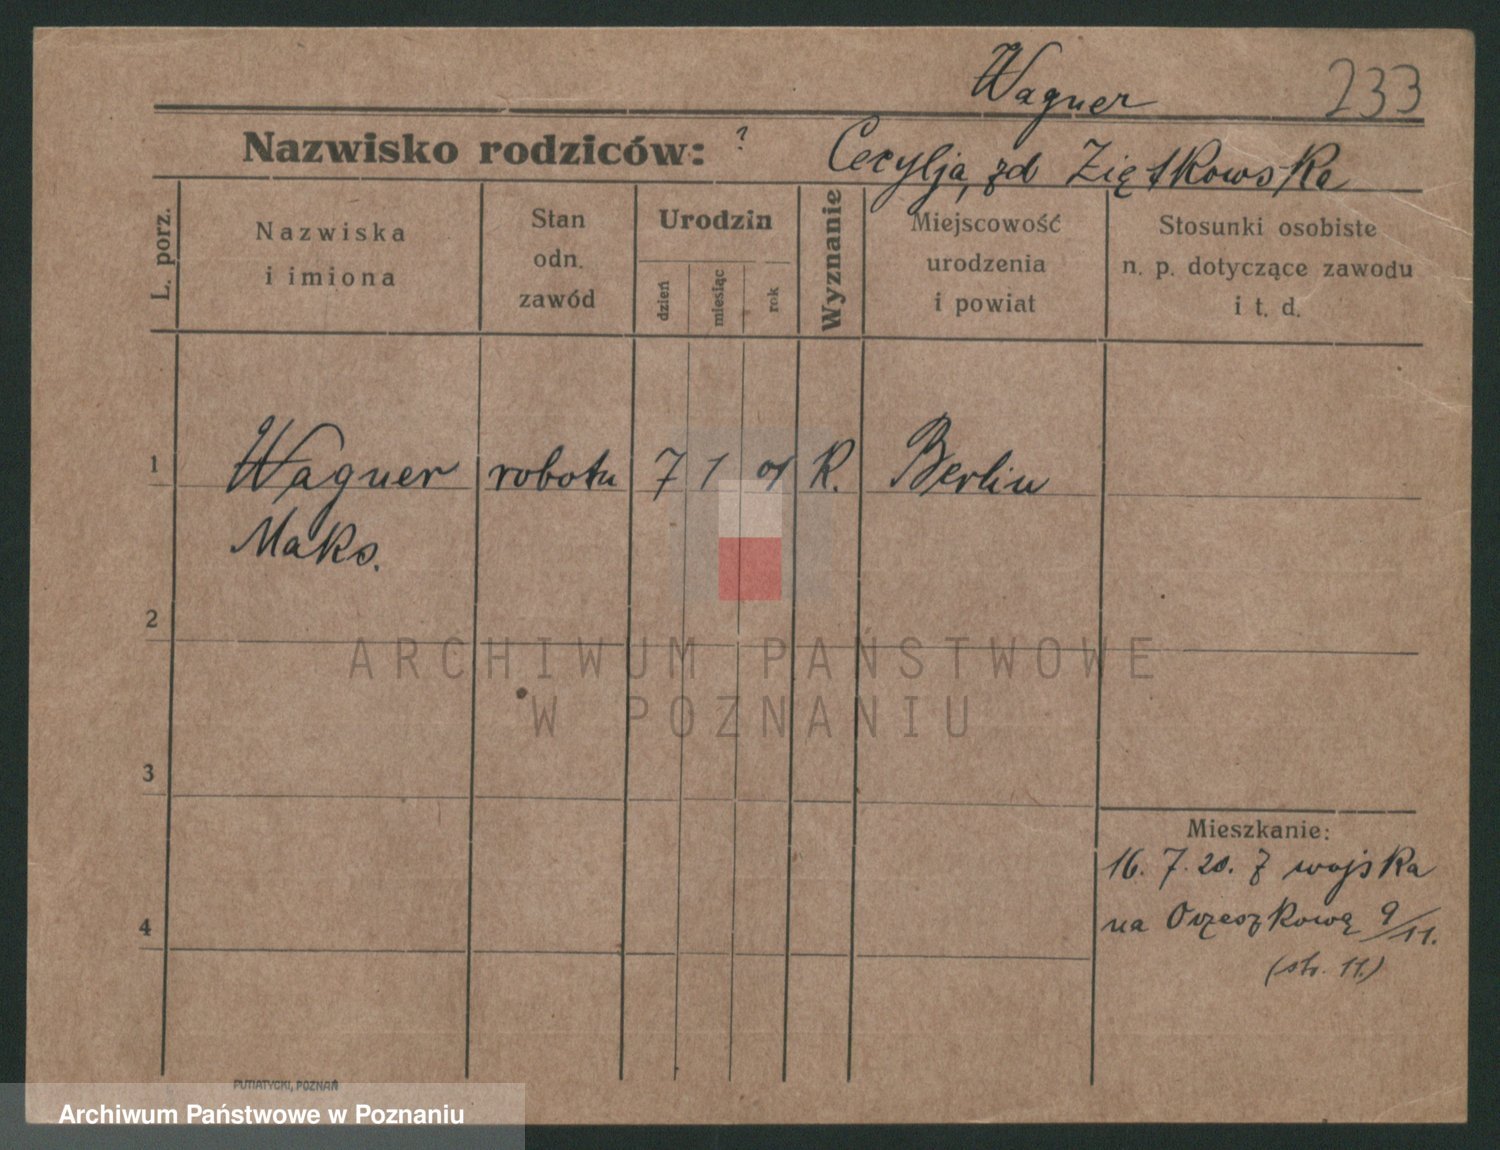 Wagner 233
Nazwisko rodziców: ? Cecylja, zd Ziętkowska
L. porz.
Nazwiska
i imiona
Stan
odn.
zawód
Urodzin
dzień
miesiąc
rok
Wyznanie
Miejscowość
urodzenia
i powiat
Stosunki osobiste
n. p. dotyczące zawodu
i t. d.
1 Wagner robotn 7 1 01 K. Berlin
Maks.
2
ARCHIWUM PAŃSTWOWE
W POZNANIU
3
Mieszkanie:
16. 7. 20. z wojska
4
na Orzeszkową 9/11.
(str. 11.)
PUTIATYCKI, POZNAŃ
Archiwum Państwowe w Poznaniu